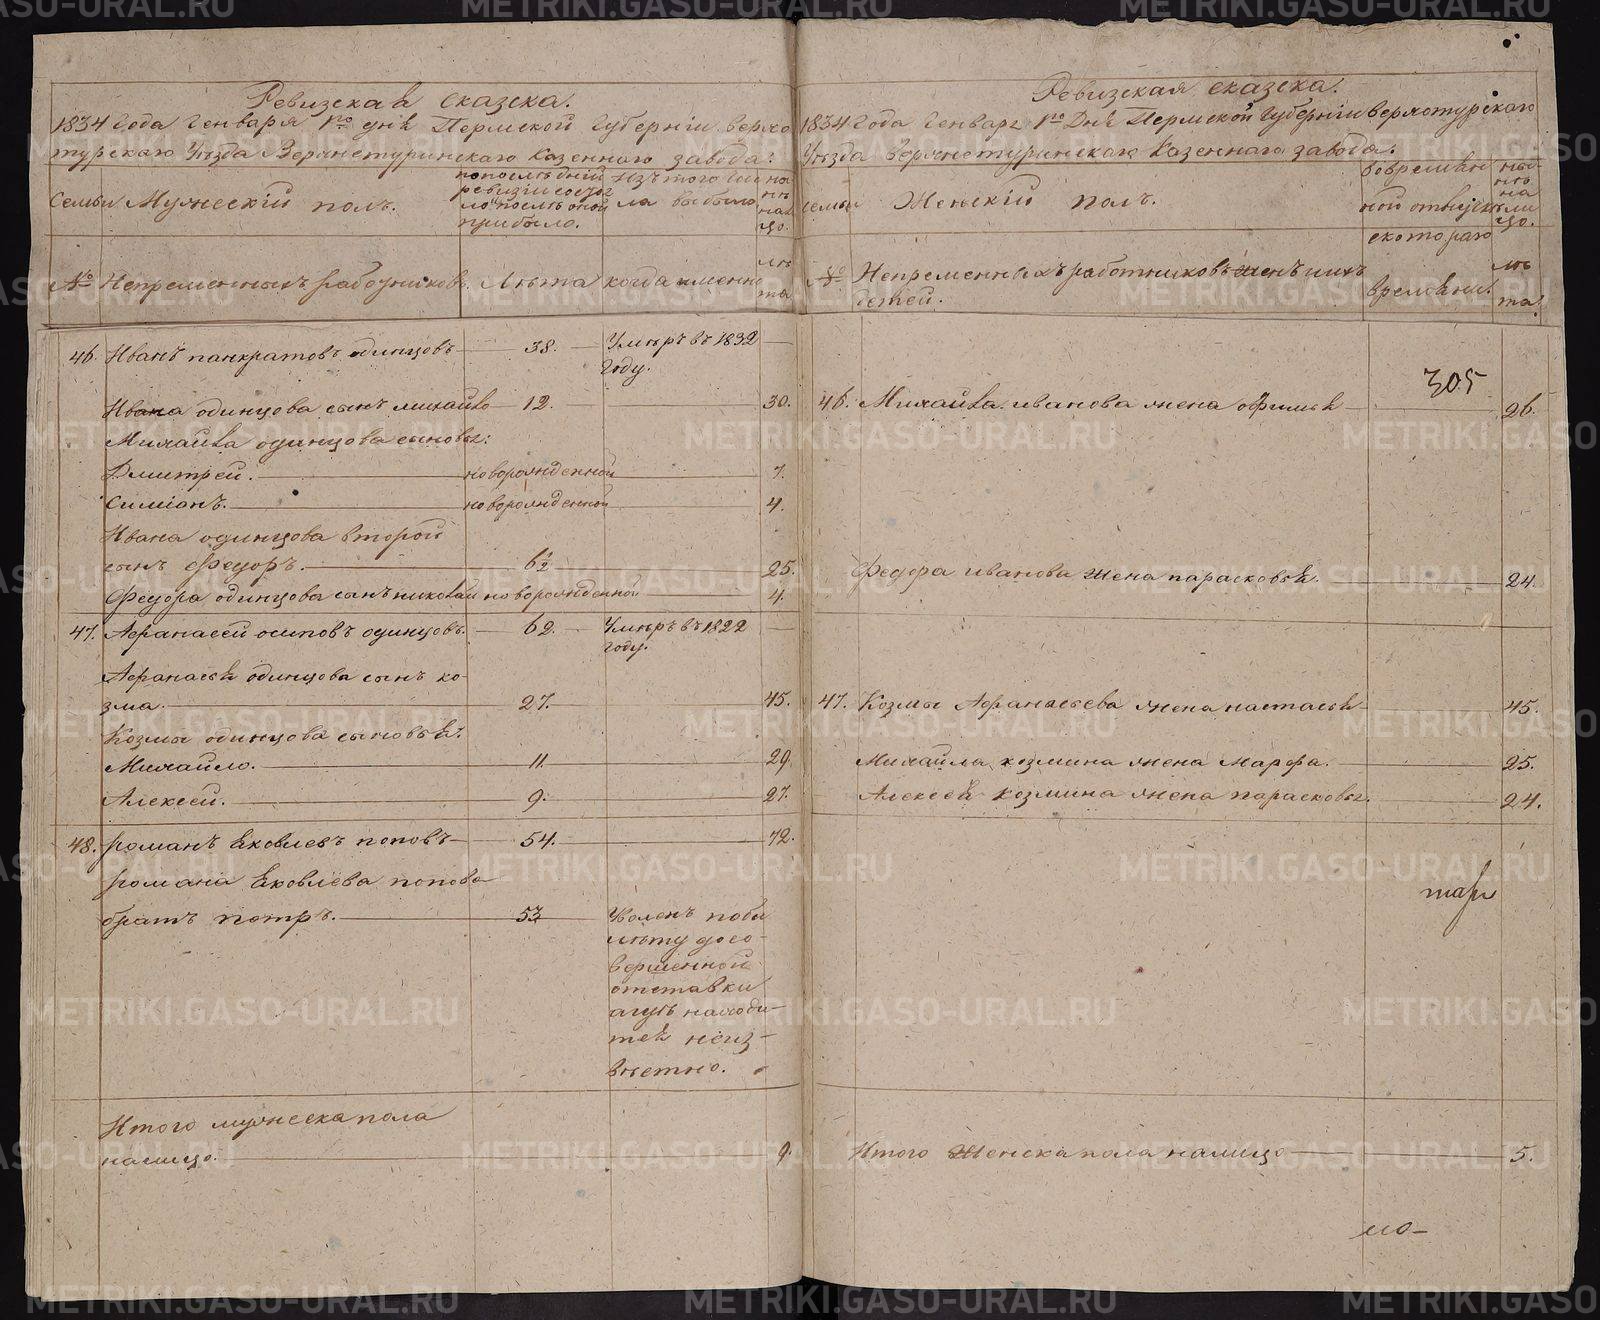 Ревизская сказска.
1834 Года Генваря 1го дня Пермской Губернiи Верхо
турскаго Уезда Верхнетуринскаго Казеннаго завода:
Семьи Мужескiй полъ.
по последней
ревизiи состоя
ло и после оной
прибыло.
Изъ того чис
ла выбыло
на
ли
цо.
№ Непременныхъ работниковъ. Лета когда именно
ле
та
46. Иванъ панкратовъ одинцовъ 38. Умеръ въ 1832
году.
Ивана одинцова сынъ михайло 12. 30.
Михайла одинцова сыновья:
Дмитрей. новорожденной 7.
Симiонъ. новорожденной 4.
Ивана одинцова второй
сынъ Федоръ. 6½ 25.
Федора одинцова сынъ николай новорожденной 4.
47. Афанасей осиповъ одинцовъ. 62. Умеръ въ 1822
году.
Афанасья одинцова сынъ ко-
зма. 27. 45.
Козмы одинцова сыновья.
Михайло. 11. 29.
Алексей. 9. 27.
48. романъ Яковлевъ поповъ 54. 72.
романа Яковлева попова
братъ петръ. 53 Уволенъ по би
лету до со-
вершенной
отставки
а где находи-
тся неиз-
вестно.
Итого мужеска пола
налицо. 9.
Ревизская сказска.
1834 Года Генваря 1го Дня Пермской Губернiи Верхотурскаго
Уезда Верхнетуринскаго Казеннаго завода.
семьи Женскiй полъ.
Во времен
ной отлучке
с котораго
ны
не
на
ли
цо.
№ Непременныхъ работниковъ женъ и ихъ
детей.
времени.
ле
та.
305
46. Михайла иванова жена офимья 26.
Федора иванова жена парасковья. 24.
47. Козмы Афанасьева жена настасья 45.
Михайла козмина жена марфа. 25.
Алексея козмина жена парасковья. 24.
Итого Женска пола налицо 5.